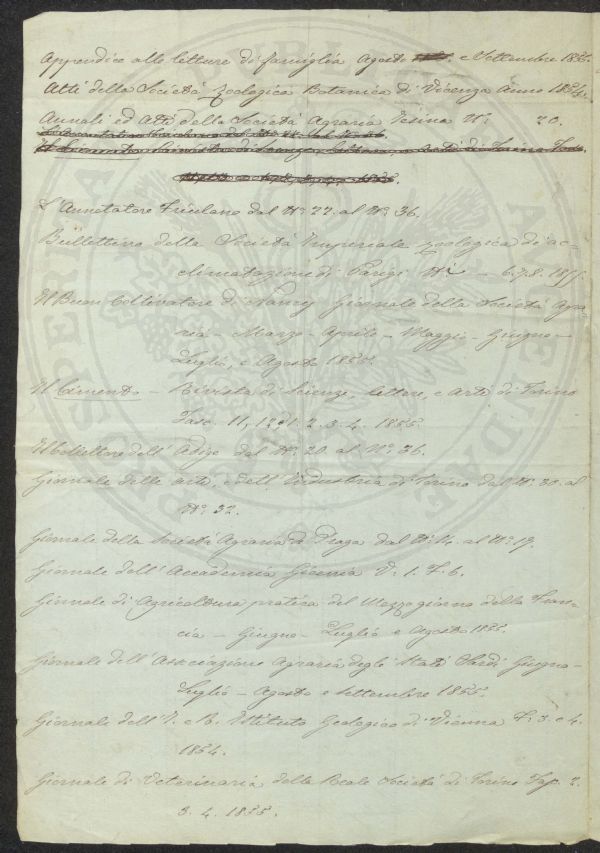 Appendice alle letture di famiglia Agosto e Settembre 1855.
Atti della Società Zoologico Botanica di Vicenza Anno 1854.
Annali ed Atti della Società Agraria Jesina N. 20.
L'Annotatore Friulano dal N° 22. al N° 36.
Bullettino della Società Imperiale zoologica di ac-
climatazione di Parigi N. – 6.7.8. 1855
Il Buon Coltivatore di Nancy Giornale della Società Agra-
ria – Marzo – Aprile – Maggio – Giugno –
Luglio, e Agosto 1855.
Il Cimento – Rivista di Scienze, lettere, e Arti di Torino
Fasc. 11, 12 1. 2. 3. 4. 1855.
Il Collettore dell'Adige dal N. 20. al N° 36.
Giornale delle arti, e dell'Industria di Torino dal N. 30. al
N. 32.
Giornale della Società Agraria di Praga dal N. 14. al N° 19.
Giornale dell'Accademia Gioenia V. 1. F. 6.
Giornale di Agricoltura pratica del Mezzogiorno della Fran-
cia – Giugno – Luglio e Agosto 1855.
Giornale dell'Associazione Agraria degli Stati Sardi Giugno –
Luglio – Agosto e Settembre 1855.
Giornale dell'I. e R. Istituto Geologico di Vienna F. 3. e 4.
1854.
Giornale di Veterinaria della Reale Società di Torino Fas. 2.
3. 4. 1855.